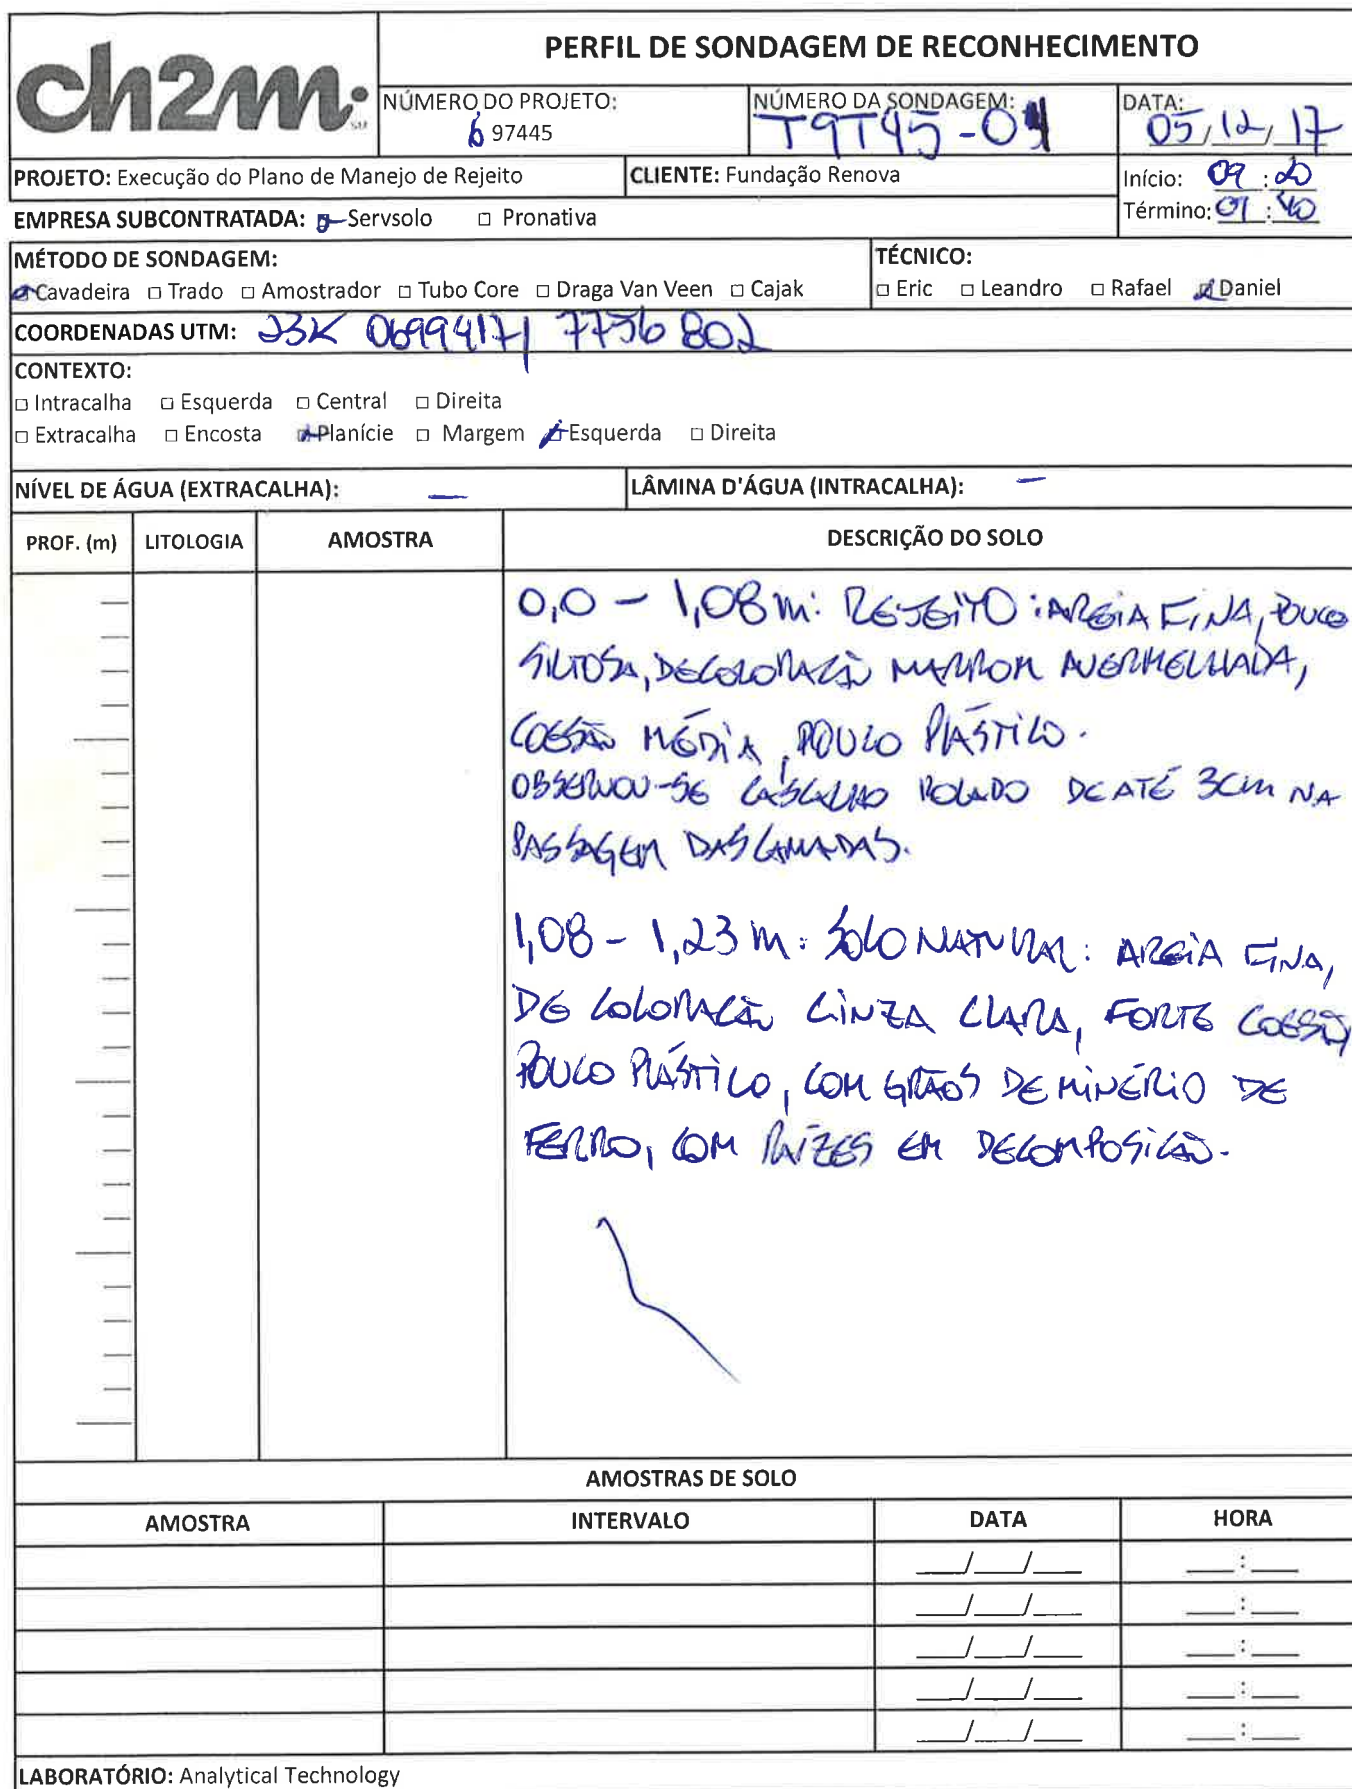 ch2m:
PERFIL DE SONDAGEM DE RECONHECIMENTO
NÚMERO DO PROJETO:
697445
NÚMERO DA SONDAGEM:
T9T45-01
DATA:
05/12/17
PROJETO: Execução do Plano de Manejo de Rejeito
CLIENTE: Fundação Renova
Início: 09:20
Término: 09:40
EMPRESA SUBCONTRATADA: Servsolo □ Pronativa
MÉTODO DE SONDAGEM:
Cavadeira □ Trado □ Amostrador □ Tubo Core □ Draga Van Veen □ Cajak
TÉCNICO:
□ Eric □ Leandro □ Rafael Daniel
COORDENADAS UTM: 23K 0699417/ 7756802
CONTEXTO:
□ Intracalha □ Esquerda □ Central □ Direita
□ Extracalha □ Encosta Planície □ Margem Esquerda □ Direita
NÍVEL DE ÁGUA (EXTRACALHA): —
LÂMINA D'ÁGUA (INTRACALHA): —
PROF. (m) LITOLOGIA AMOSTRA DESCRIÇÃO DO SOLO
0,0 - 1,08 m: REJEITO: AREIA FINA, POUCO
SILTOSA, DE COLORAÇÃO MARROM AVERMELHADA,
COESÃO MÉDIA, POUCO PLÁSTICO.
OBSERVOU-SE CASCALHO ROLADO DE ATÉ 3cm NA
PASSAGEM DAS CAMADAS.
1,08 - 1,23 m: SOLO NATURAL: AREIA FINA,
DE COLORAÇÃO CINZA CLARA, FORTE COESÃO,
POUCO PLÁSTICO, COM GRÃOS DE MINÉRIO DE
FERRO, COM RAÍZES EM DECOMPOSIÇÃO.
AMOSTRAS DE SOLO
AMOSTRA INTERVALO DATA HORA
___/___/___ ___:___
___/___/___ ___:___
___/___/___ ___:___
___/___/___ ___:___
___/___/___ ___:___
LABORATÓRIO: Analytical Technology